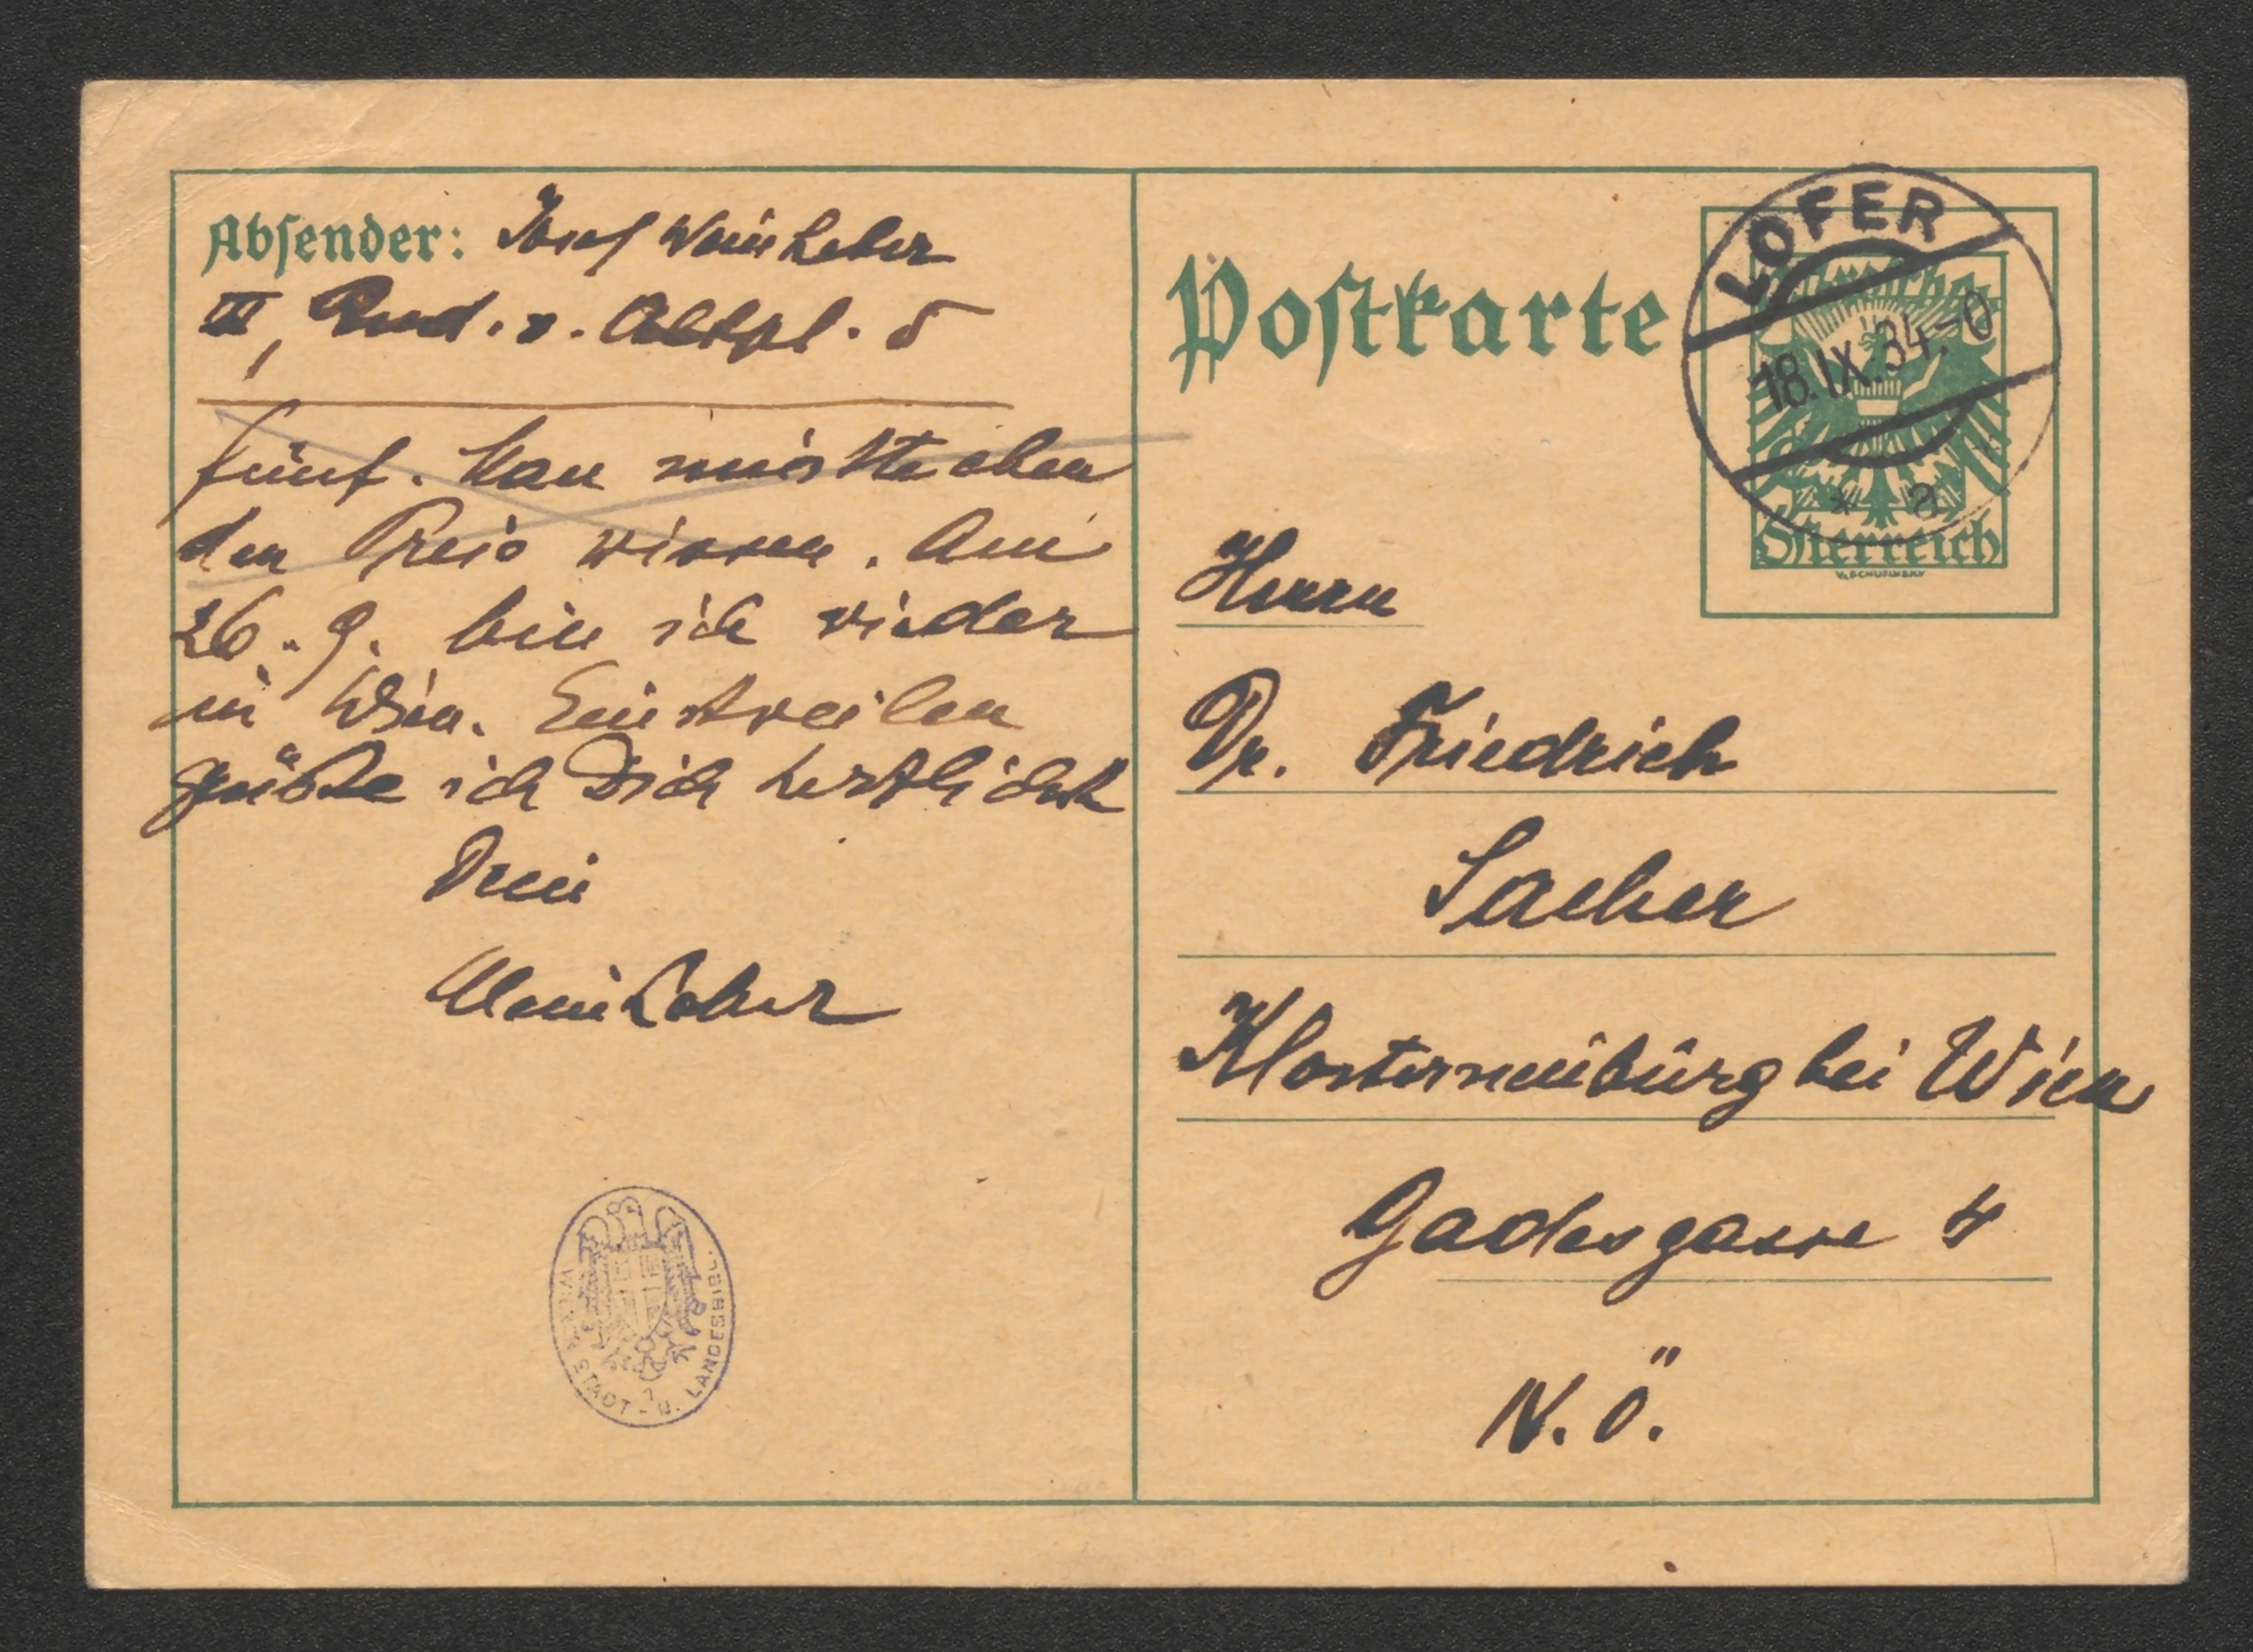 Absender: Josef Weinheber
III, Rud. v. Altpl. 5
fünf. Man müsste eben
den Preis wissen. Am
26. 9. bin ich wieder
in Wien. Einstweilen
grüßte ich Dich herzlichst
Dein
Weinheber
WIENER STADT - U. LANDESBIBL.
Postkarte
LOFER
18.IX.34.-0
* a
Österreich
Herrn
Dr. Friedrich
Sacher
Klosterneuburg bei Wien
Gadesgasse 4
N.Ö.